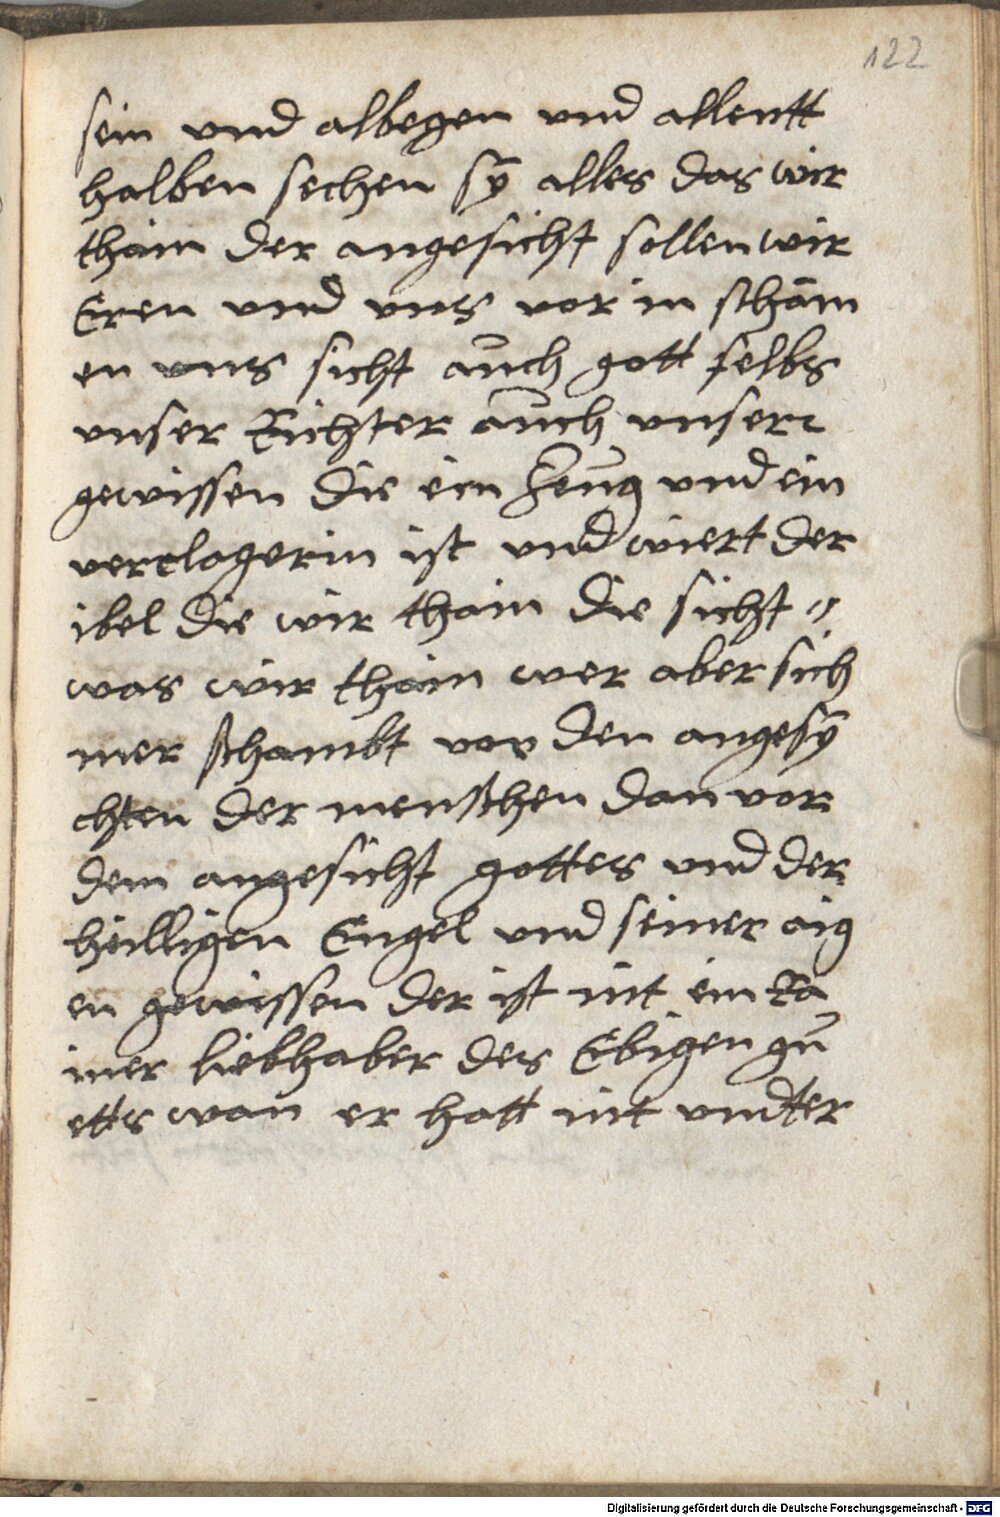 122
sein und albegen und allentt
halben sechen sÿ alles das wir
thain der angesicht sollen wir
Eren und uns vor in scham
en uns sicht auch gott selbs
unser Richter auch unser
gewissen die ein Zeug und ein
verclagerin ist und wiert der
ibel die wir thain die sicht
was wir thain wer aber sich
mer schambt vor den angesÿ
chten der menschen dan vor
dem angesicht gottes und der
heilligen Engel und seiner aig
en gewissen der ist nit ein Ra
iner liebhaber des Ebigen gu
etts wan er hatt nit undter
Digitalisierung gefördert durch die Deutsche Forschungsgemeinschaft - DFG